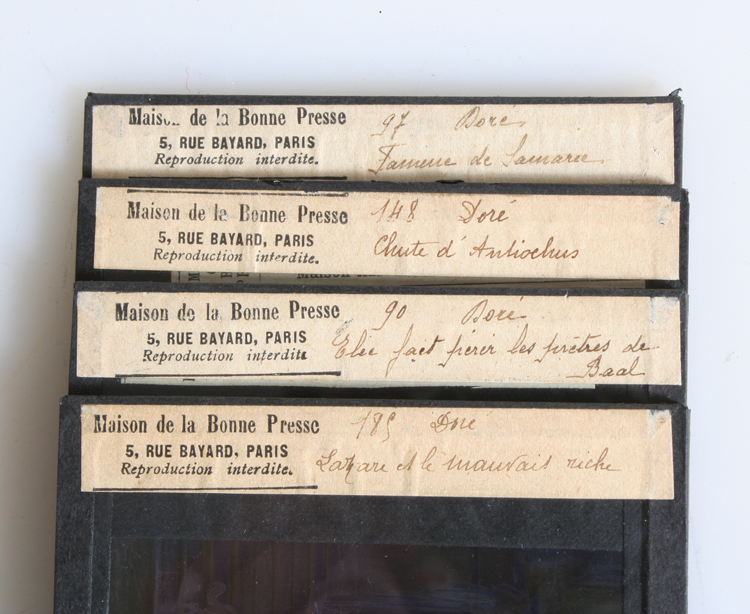 Maison de la Bonne Presse 97 Doré
5, RUE BAYARD, PARIS
Reproduction interdite. Famine de Samarie
Maison de la Bonne Presse 148 Doré
5, RUE BAYARD, PARIS Chute d'Antiochus
Reproduction interdite.
Maison de la Bonne Presse 90 Doré
5, RUE BAYARD, PARIS Elie fact périr les prêtres de
Reproduction interdite Baal
Maison de la Bonne Presse 185 Doré
5, RUE BAYARD, PARIS Lazare et le mauvais riche
Reproduction interdite.